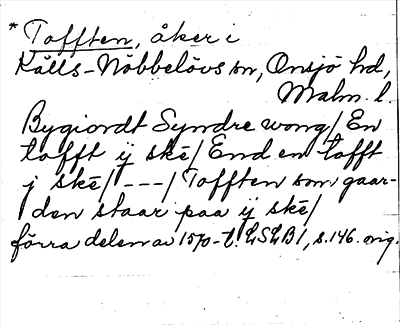 * Tofften, åker i
Källs-Nöbbelövs sn, Onsjö hd,
Malm. l.
Bygiordt Syndre wong/ En
tofft ij skē/ End en tofft
j skē/ ---/ Tofften som gaar-
den staar paa ij skē/
förra delen av 1570-t. LSLB 1, s. 146. orig.